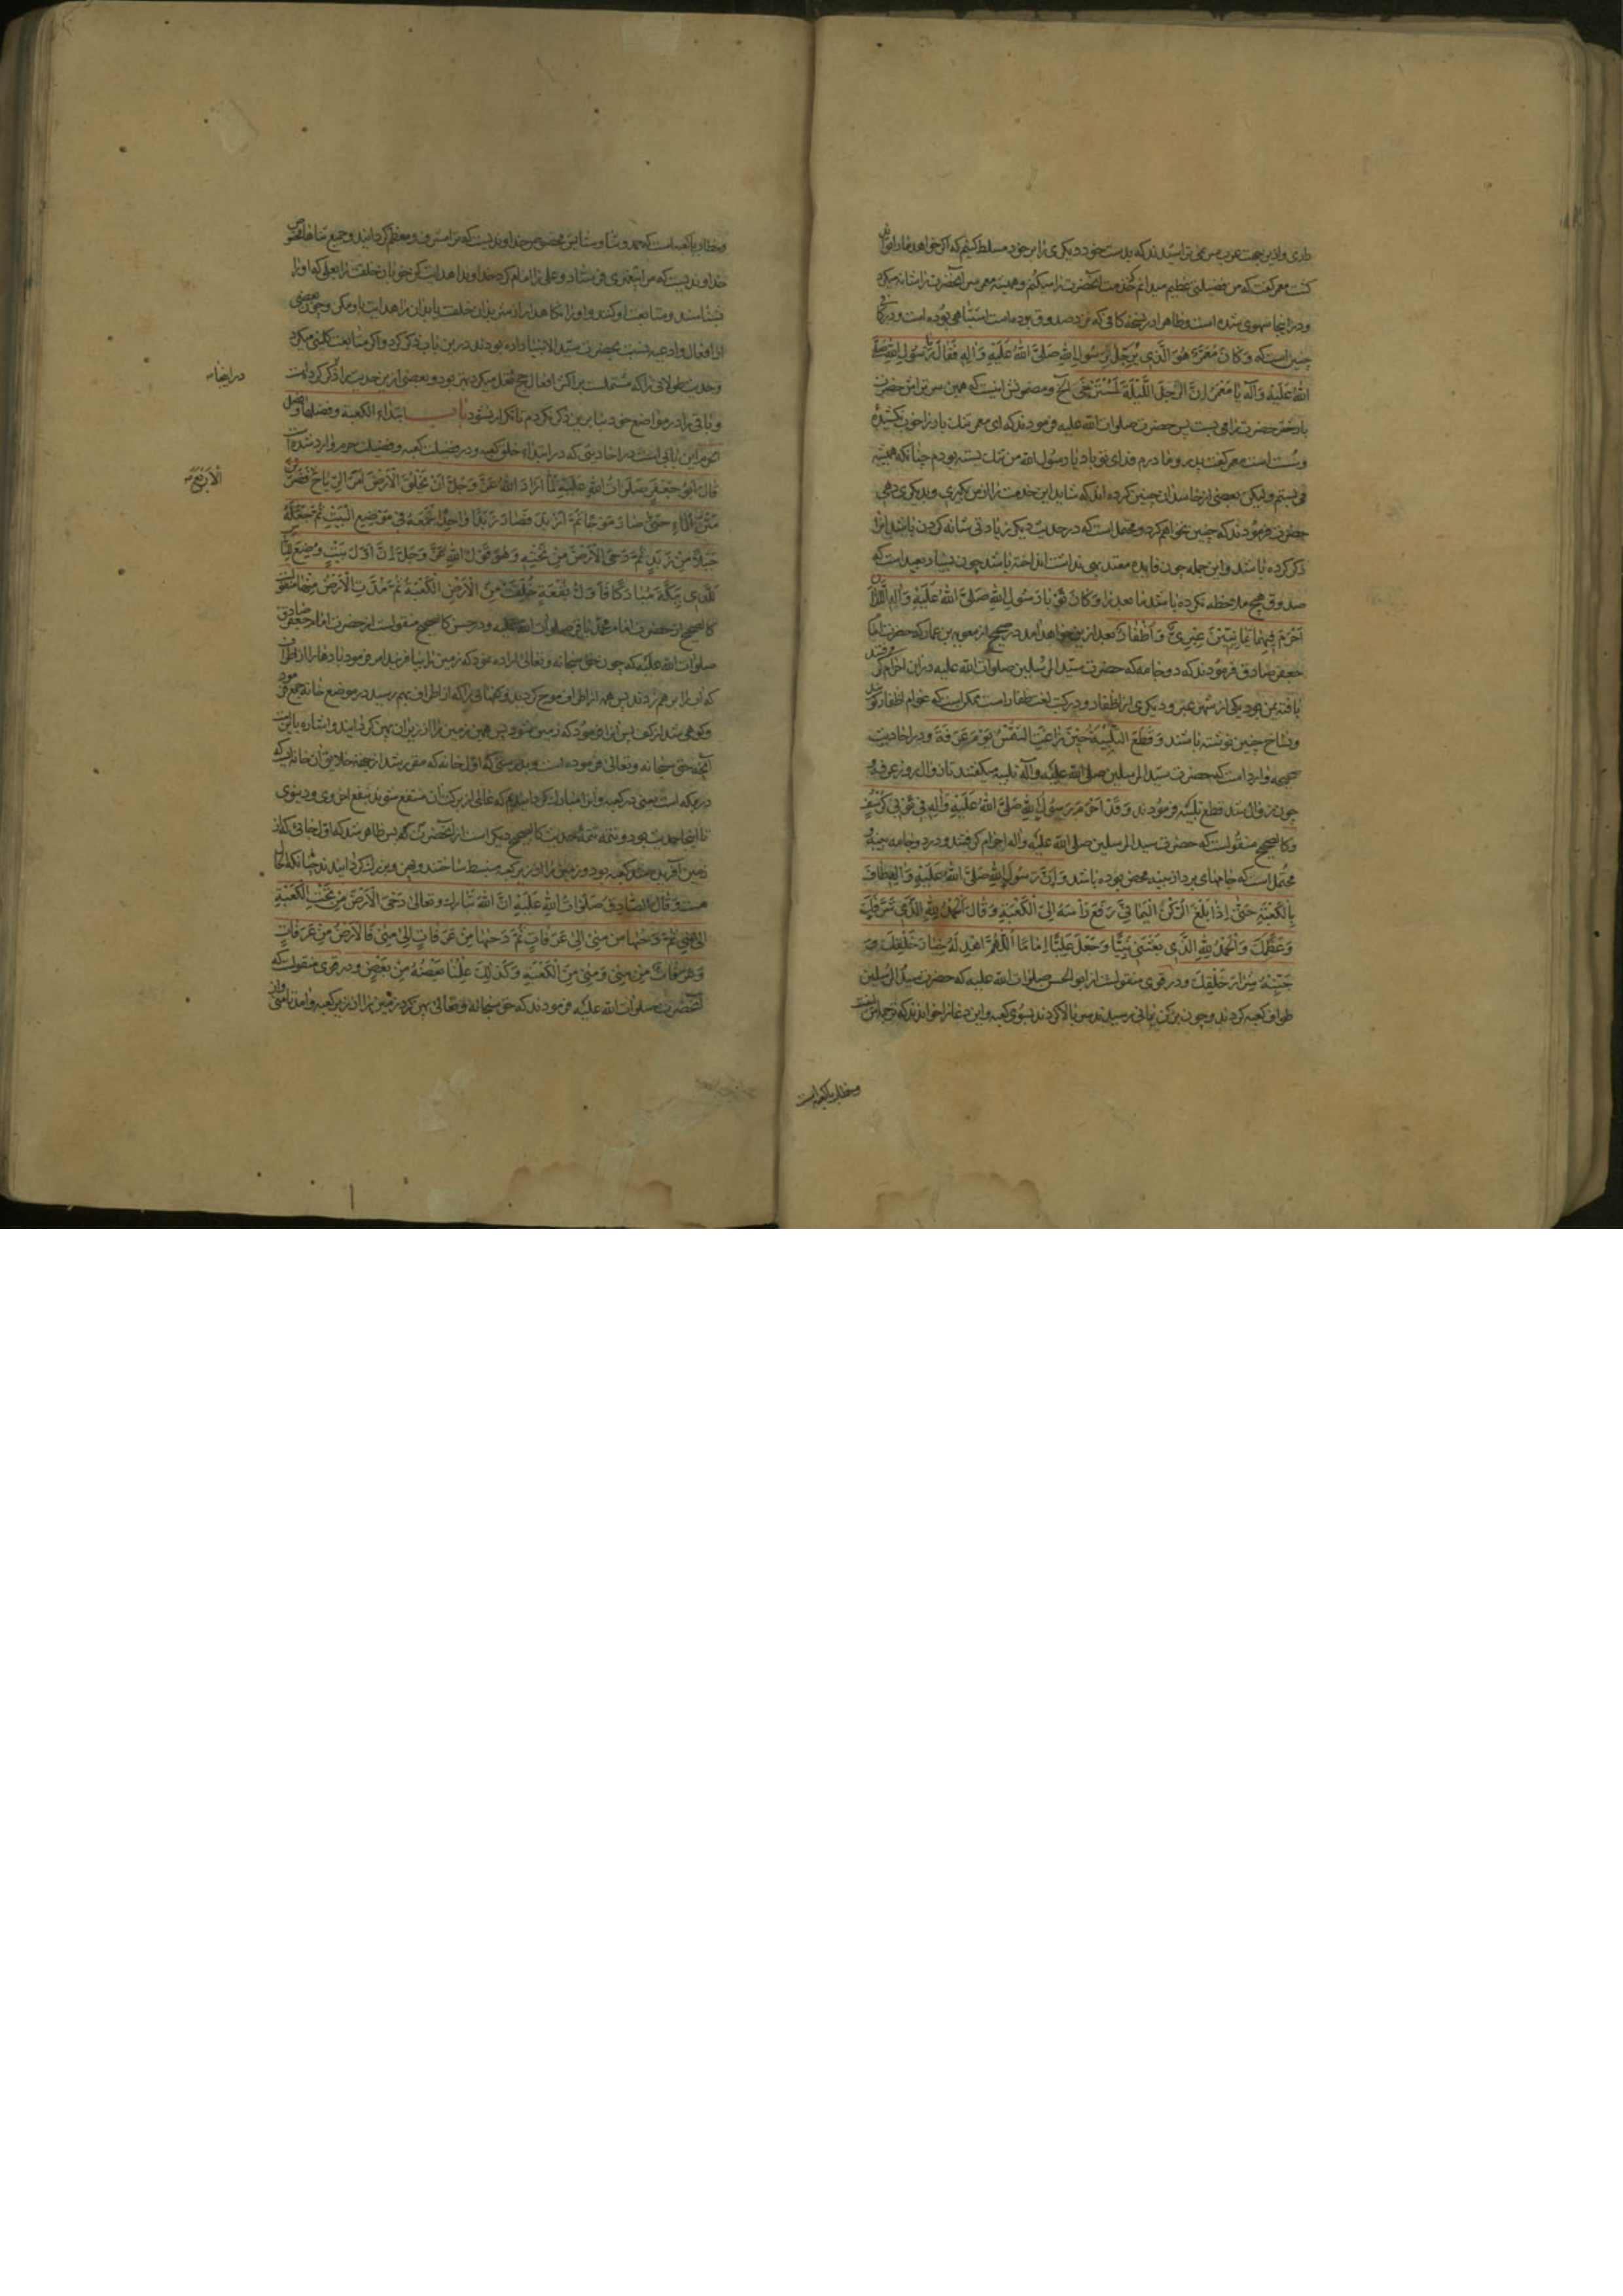 داری و ازین جهت عرب سر نمی تراشیدند که بدست خود دیکری را بر خود مسلط کنیم که اکر خواهد مارا تواند
کشت معمر کفت که من فضیلتی عظیم میدانم که خدمت آنحضرت را میکنم و همیشه معمر سر آنحضرت را شانه میکرد
و در اینجا سهوی شده است و ظاهرا در نسخه کافی که نزد صدوق بوده است اشتباهی بوده است و در کافی
چنین است که وَكَانَ مُعَمَّرٌ هُوَ الَّذِي يُرَجِّلُ رَسُولِ اللهِ صَلَّى اللهُ عَلَيْهِ وَآلِهِ فَقَالَ يَا رَسُولُ اللهِ صَلَّى
اللهُ عَلَيْهِ وَآلِهِ يَا مَعْمَرُ إِنَّ الرَّحْلَ اللَّيْلَةَ لَمُسْتَرْخًى الخ و مضمونش اینست که همین سر تراش حضرت
بار شتر حضرت را می بست پس حضرت صلوات الله علیه فرمودند که ای معمر تنک بار را خوب نکشیده
و سست است معمر کفت پدر و مادرم فدای تو باد یا رسول الله من تنک بسته بودم چنانکه همیشه
می بستم ولیکن بعضی از حاسدان چنین کرده اند که شاید این خدمت را از من بکیری و بدیکری دهی
حضرت فرمودند که چنین نخواهم کرد و محتمل است که در حدیث دیکر زیادتی شانه کردن باشد انرا
ذکر کرده باشد و این جمله چون فایده معتد بهی نداشت انداخته باشد چون بسیار بعید است که
صدوق هیچ ملاحظه نکرده باشد ما بعد را وَكَانَ ثَوْبَا رَسُولِ اللهِ صَلَّى اللهُ عَلَيْهِ وَآلِهِ اللَّذَانِ
اَحْرَمَ فِيهِمَا يَمَانِيَّيْنِ عِبْرِيٌّ وَاَظْفَارٌ بعد ازین خواهد امد در صحیح از معویه بن عمار که حضرت امام
جعفر صادق فرمودند که دو جامه که حضرت سید المرسلین صلوات الله علیه در ان احرام کرفتند
یافته من بود یکی از شهر عبر و دیکری از اظفار و در کتب لغت ظفار است ممکن است که عوام اظفار کویند
و نساخ چنین نوشته باشند وَقَطَعَ التَّلْبِيَةَ حِينَ زَاغَتِ الشَّمْسُ يَوْمَ عَرَفَةَ و در احادیث
صحیحه وارد است که حضرت سید المرسلین صلی الله علیه وآله تلبیه میکفتند تا زوال روز عرفه و
چون زوال شد قطع تلبیه فرمودند وَقَدْ اَحْرَمَ رَسُولُ اللهِ صَلَّى اللهُ عَلَيْهِ وَآلِهِ فِي ثَوْبَيْ كُرْسُفٍ
و کالصحیح منقولست که حضرت سید المرسلین صلی الله علیه وآله احرام کرفتند در دو جامه پنبه و
محتمل است که جامهای برد از پنبه محض بوده باشد وَاِنَّ رَسُولَ اللهِ صَلَّى اللهُ عَلَيْهِ وَآلِهِ طَافَ
بِالْكَعْبَةِ حَتَّى اِذَا بَلَغَ الرُّكْنَ الْيَمَانِيَّ رَفَعَ رَأْسَهُ اِلَى الْكَعْبَةِ وَقَالَ اَلْحَمْدُ لِلّٰهِ الَّذِي شَرَّفَكِ
وَعَظَّمَكِ وَالْحَمْدُ لِلّٰهِ الَّذِي بَعَثَنِي نَبِيًّا وَجَعَلَ عَلِيًّا اِمَامًا اَللّٰهُمَّ اهْدِ لَهُ خِيَارَ خَلْقِكَ وَ
جَنِّبْهُ شِرَارَ خَلْقِكَ و در قوی منقولست از ابوالحسن صلوات الله علیه که حضرت سید المرسلین
طواف کعبه کردند و چون برکن یمانی رسیدند سر بالا کردند بسوی کعبه و این دعا را خواندند که ترجمه اش اینست
و خطاب باکعبه است
و خطاب باکعبه است که حمد و ثنا و ستایش مخصوص خداوندیست که ترا مشرف و معظم کردانید و جمیع ثناها مخصوص
خداوندیست که مرا بپیغمبری فرستاد و علی را امام کرد خداوندا هدایت کن خوبان خلقت را بعلی که او را
بشناسند و متابعت او کنند و او را نکاهدار از شریران خلقت یا بدان را هدایت باو مکن و چون بعضی
از افعال و ادعیه نسبت بحضرت سید الانبیا داده بودند درین باب ذکر کرد و اکر متابعت کلینی میکرد
و حدیث طولانی را که مشتملست بر اکثر افعال حج نقل میکرد بهتر بود و بعضی ازین حدیث را ذکر کرده است
در اینجا
و باقی را در مواضع خود بنا برین ذکر نکردم تا تکرار نشود باب ابتداء الکعبة وفضلها وفضل
الحرم این بابی است در احادیثی که در ابتداء خلق کعبه و در فضیلت کعبه و فضیلت حرم وارد شده است
قَالَ اَبُو جَعْفَرٍ صَلَوَاتُ اللهِ عَلَيْهِ لَمَّا اَرَادَ اللهُ عَزَّ وَجَلَّ اَنْ يَخْلُقَ الْاَرْضَ اَمَرَ الرِّيَاحَ فَضَرَبْنَ
الْاَرْبَعَ
مَتْنَ الْمَاءِ حَتَّى صَارَ مَوْجًا ثُمَّ اَزْبَدَ فَصَارَ زَبَدًا وَاحِدًا فَجَمَعَهُ فِي مَوْضِعِ الْبَيْتِ ثُمَّ جَعَلَهُ
جَبَلًا مِنْ زَبَدٍ ثُمَّ دَحَى الْاَرْضَ مِنْ تَحْتِهِ وَهُوَ قَوْلُ اللهِ عَزَّ وَجَلَّ اِنَّ اَوَّلَ بَيْتٍ وُضِعَ لِلنَّاسِ
لَلَّذِي بِبَكَّةَ مُبَارَكًا فَاَوَّلُ بُقْعَةٍ خُلِقَتْ مِنَ الْاَرْضِ الْكَعْبَةُ ثُمَّ مُدَّتِ الْاَرْضُ مِنْهَا منقولست
کالصحیح از حضرت امام محمد باقر صلوات الله علیه و در حسن کالصحیح منقولست از حضرت امام جعفر صادق
صلوات الله علیه که چون حق سبحانه و تعالی اراده نمود که زمین را بیافریند امر فرمود بادها را از اطراف
که آب را بر هم زدند پس همه از اطراف موج کردند و کفهائی را که از اطراف بهم رسید در موضع خانه جمع فرمود
و کوهی شد از کف پس انرا فرمود که زمین شود پس همین زمین را از زیر ان پهن کردانید و اشاره باین است
آنچه حق سبحانه و تعالی فرموده است و بدرستی که اول خانه که مقرر شد از جهة خلایق ان خانه ایست که
در مکه است یعنی در کعبه و انرا مبارک کردانیدیم که عالمی از برکت آن منتفع شوند بنفع اخروی و دنیوی
تا اینجا حدیث بود و تتمه تتمهٔ حدیث کالصحیح دیکر است از آنحضرت که پس ظاهر شد که اول جائی که از
زمین آفریده شد کعبه بود و زمین را از زیر کعبه منبسط ساختند و پهن و بزرک کردانیدند چنانکه الحال
هست وَقَالَ الصَّادِقُ صَلَوَاتُ اللهِ عَلَيْهِ اِنَّ اللهَ تَبَارَكَ وَتَعَالَى دَحَى الْاَرْضَ مِنْ تَحْتِ الْكَعْبَةِ
اِلَى مِنًى ثُمَّ دَحَاهَا مِنْ مِنًى اِلَى عَرَفَاتٍ ثُمَّ دَحَاهَا مِنْ عَرَفَاتٍ اِلَى مِنًى فَالْاَرْضُ مِنْ عَرَفَاتٍ
وَعَرَفَاتٌ مِنْ مِنًى وَمِنًى مِنَ الْكَعْبَةِ وَكَذٰلِكَ عِلْمُنَا بَعْضُهُ مِنْ بَعْضٍ و در قوی منقولست که
آنحضرت صلوات الله علیه فرمودند که حق سبحانه و تعالی پهن کرد زمین را از زیر کعبه و امد تا منی و از